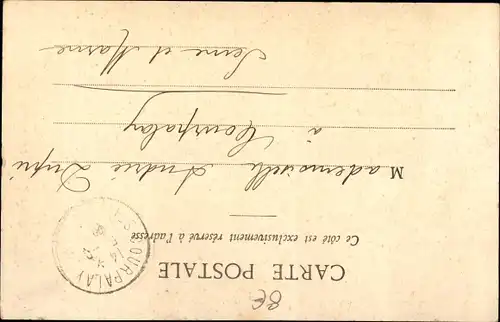 CARTE POSTALE
Ce côté est exclusivement réservé à l'adresse
COURPALAY
Mademoiselle André Dupré
à Courpalay
Seine et Marne